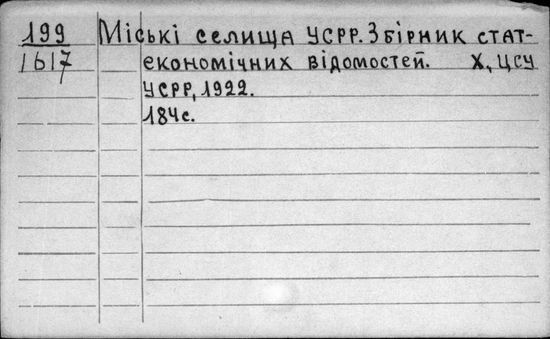 199 Міські селища УСРР. Збірник стат-
1617 економічних відомостей. Х, ЦСУ
УСРР, 1922.
184с.